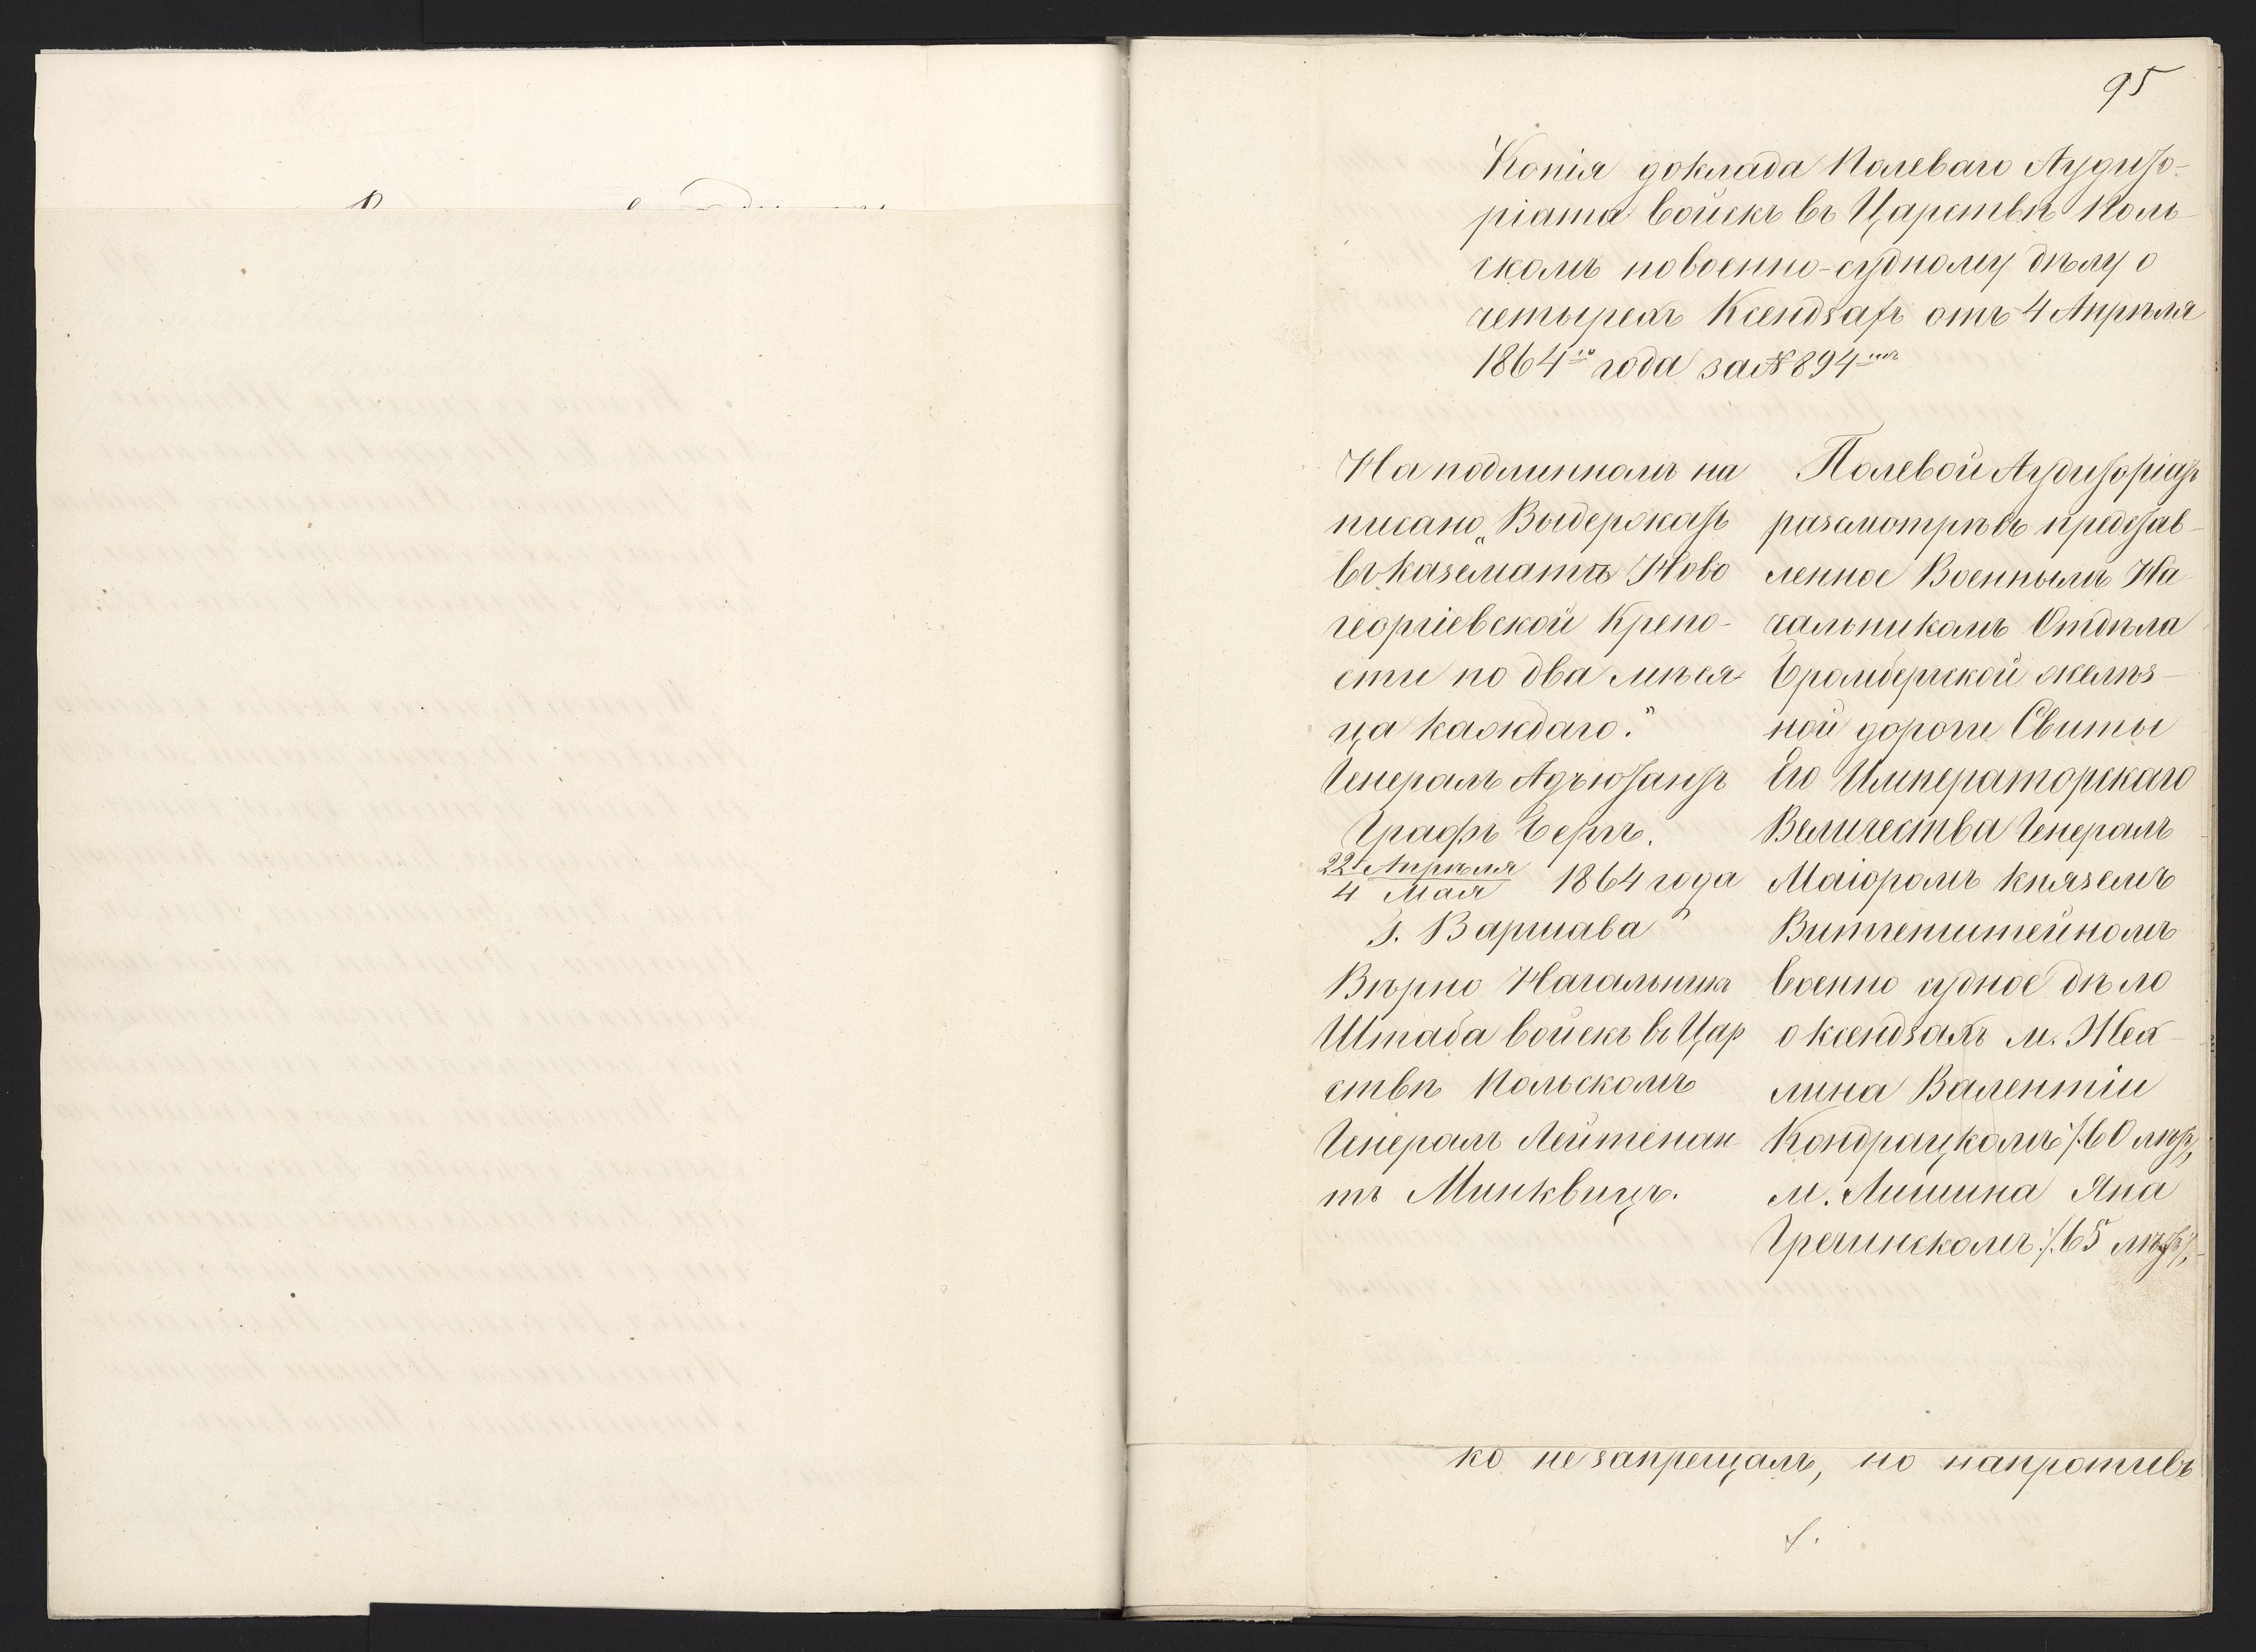 95
Копія доклада Полеваго Аудито-
ріата войскъ въ Царствѣ Поль-
скомъ по военно-судному дѣлу о
четырехъ Ксендзахъ отъ 4 Апрѣля
1864го года за № 894мъ
На подлинномъ на
писано „Выдержать
въ казематѣ Ново
георгіевской Крепо-
сти по два мѣся
ца каждаго."
Генералъ Адъютантъ
Графъ Бергъ.
22 Апрѣля
4 Мая 1864 года
г. Варшава"
Вѣрно Начальникъ
Штаба войскъ въ Цар
ствѣ Польскомъ
Генералъ Лейтенан
тъ Минквицъ.
Полевой Аудиторіатъ
разсмотрѣвъ представ-
ленное Военнымъ На
чальникомъ Отдѣла
Бромбергской желѣз-
ной дороги Свиты
Его Императорскаго
Величества Генералъ
Маіоромъ княземъ
Витгенштейномъ
военно судное дѣло
о ксендзахъ м. Жех-
лина Валентіи
Кондрацкомъ /:60 лѣтъ:/,
м. Лишина Яна
Гречинскомъ /:65 лѣтъ:/,
ко не запрещалъ, но напротивъ